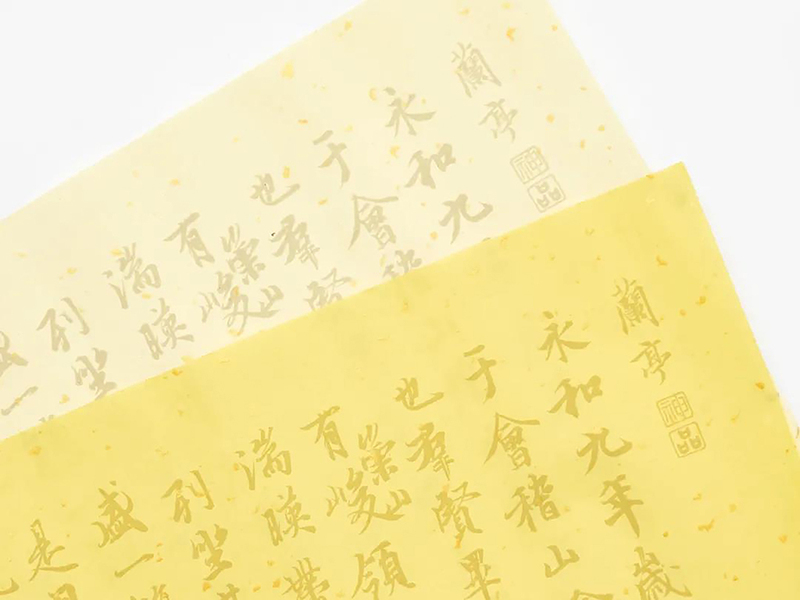 蘭亭
神品
永和九
于會稽
也羣賢
有崇山峻
湍暎
列坐
盛一
蘭亭
神品
永和九年歲
于會稽山
也羣賢畢
有崇山峻領
湍暎帶
列坐其
盛一
是